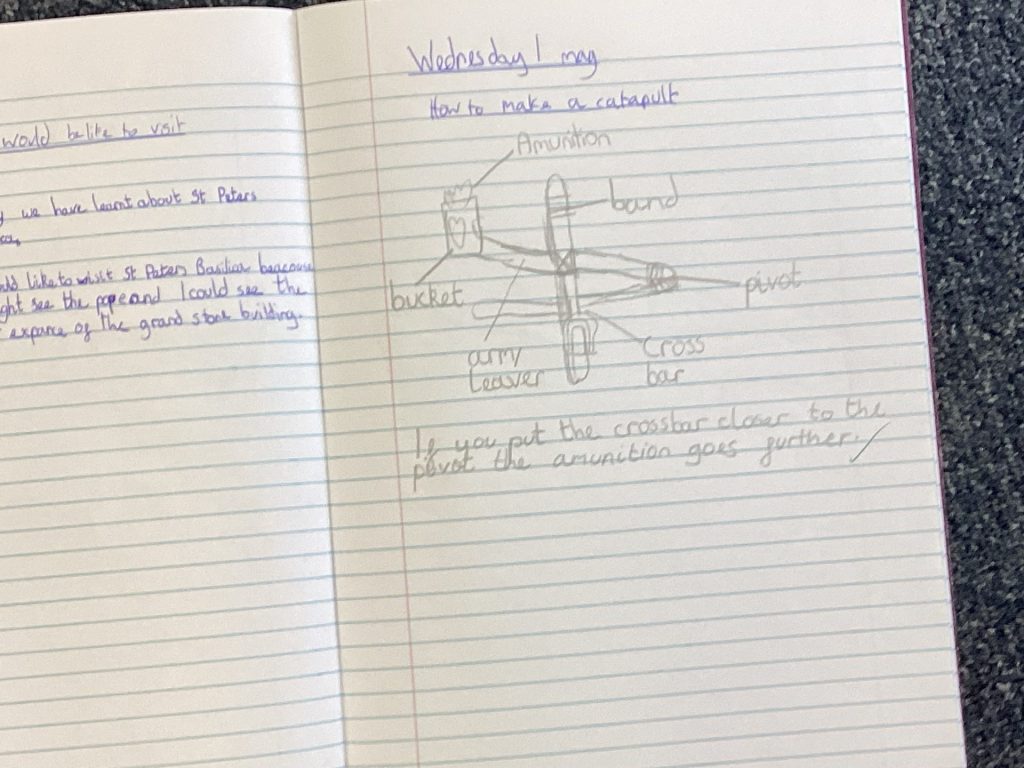 would be like to visit
we have learnt about St Peters
like to visit St Peters Basilica beacouse
see the pope and I could see the
expance of the grand stone building.
Wednesday 1 may
How to make a catapult
Amunition
band
bucket
pivot
arm/
leaver
cross
bar
If you put the crossbar closer to the
pivot the amunition goes further.